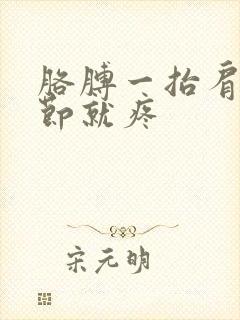 胳膊一抬肩
節就疼
宋元明